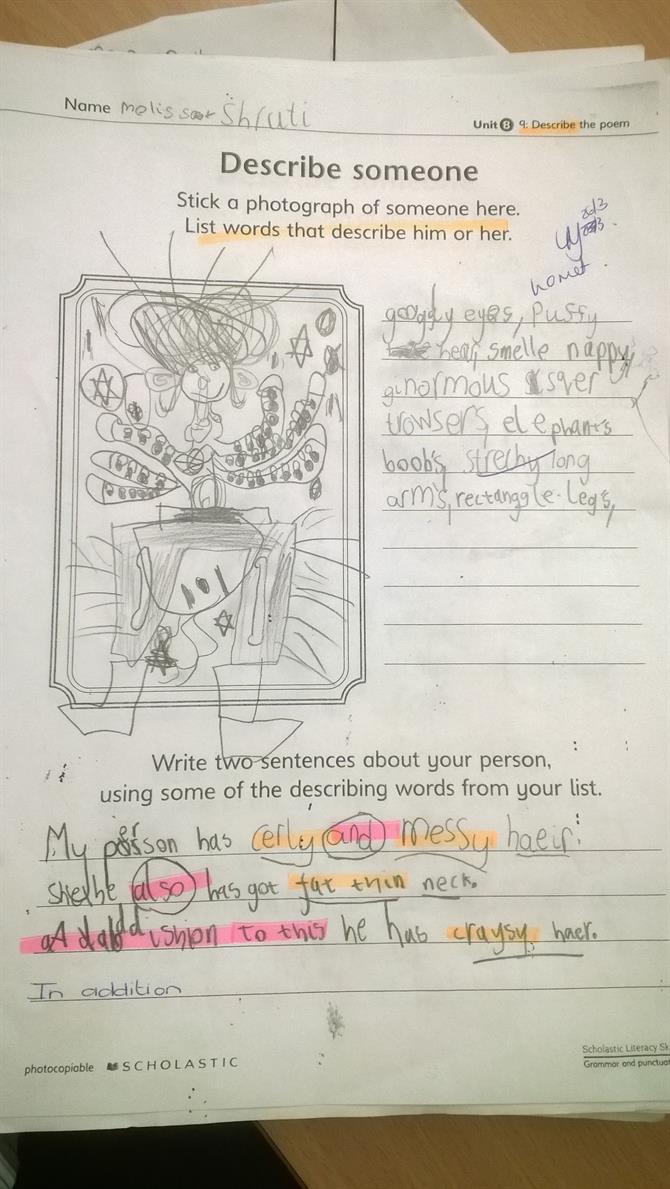 Name Melissa Shruti
Unit 8 9: Describe the poem
Describe someone
Stick a photograph of someone here.
List words that describe him or her.
26/3
googly eyes, Puffy
hear, smelle nappy,
ginormous sqer
trowsers, elephants
boobs, strechy long
arms, rectanggle. Legs,
Write two sentences about your person,
using some of the describing words from your list.
My person has cerly and messy haeir.
She/he also has got fat thin neck.
addishion to this he has craysy haer.
In addition
photocopiable SCHOLASTIC
Scholastic Literacy Sk
Grammar and punctuat